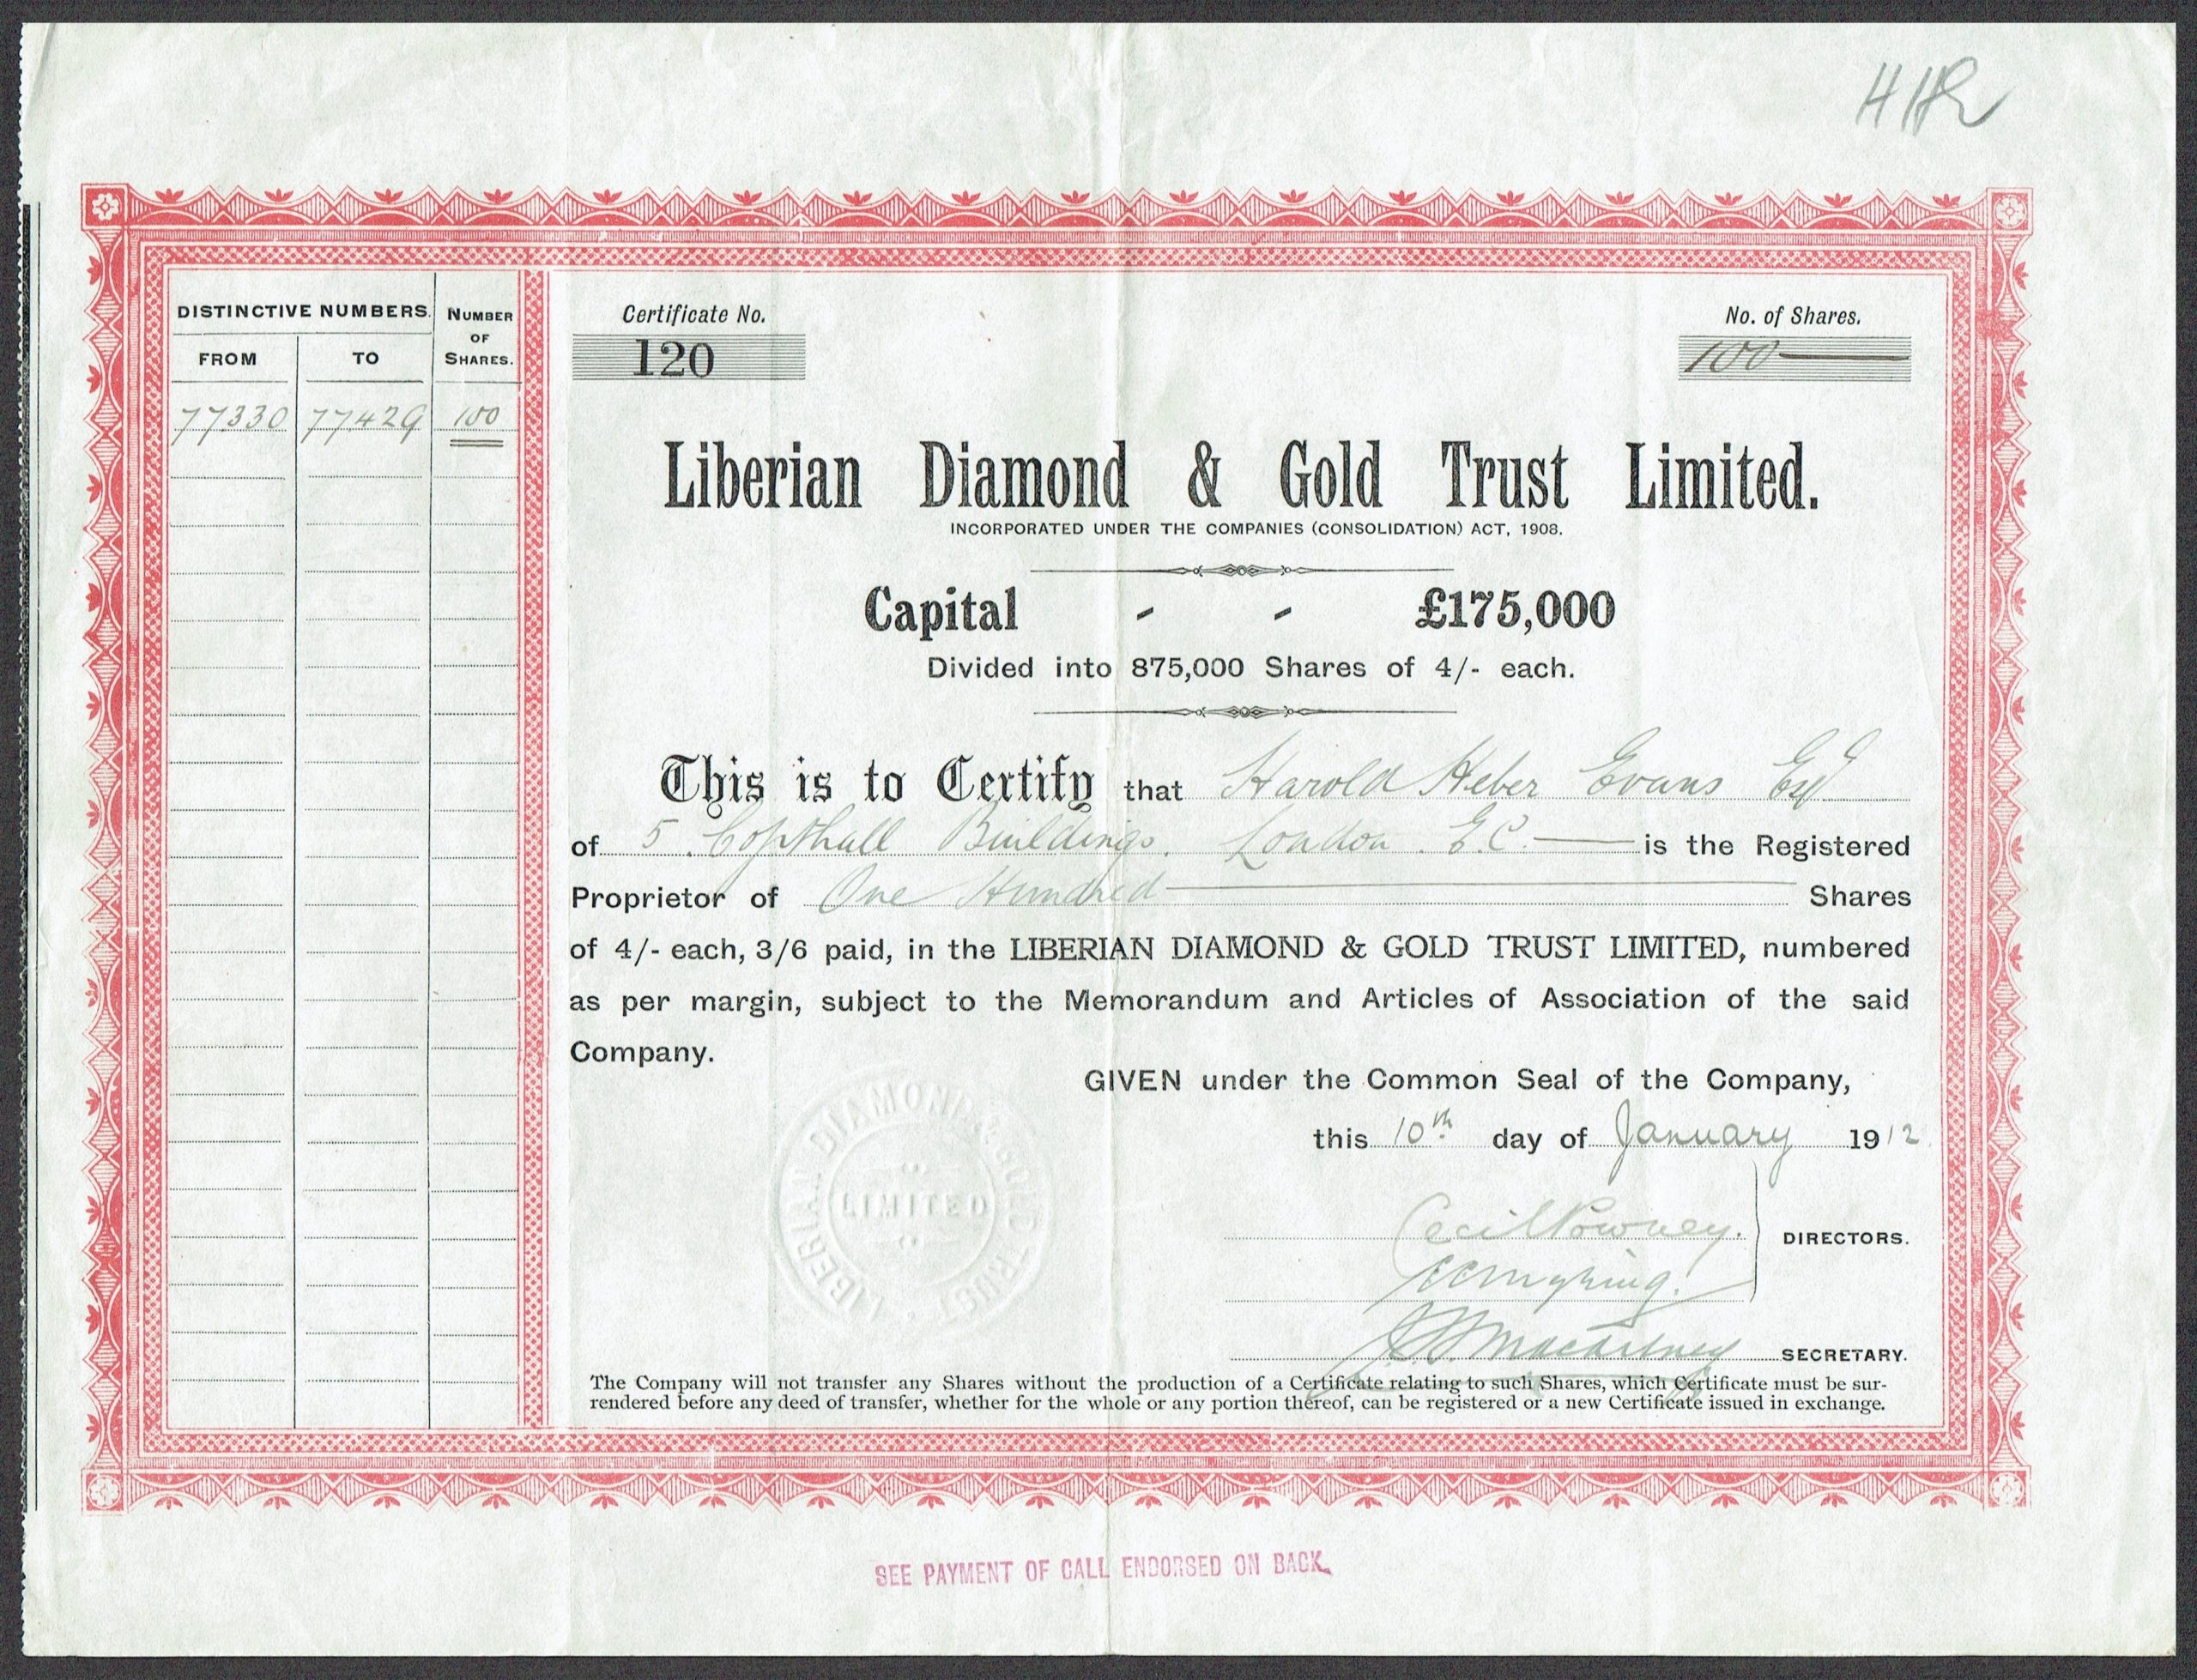 DISTINCTIVE NUMBERS.
NUMBER OF SHARES.
FROM TO
77330 77429 100
Certificate No.
120
No. of Shares.
100
Liberian Diamond & Gold Trust Limited.
INCORPORATED UNDER THE COMPANIES (CONSOLIDATION) ACT, 1908.
Capital - - £175,000
Divided into 875,000 Shares of 4/- each.
This is to Certify that Harold Heber Evans Esq
of 5 Copthall Buildings. London. E.C. is the Registered
Proprietor of One Hundred Shares
of 4/- each, 3/6 paid, in the LIBERIAN DIAMOND & GOLD TRUST LIMITED, numbered
as per margin, subject to the Memorandum and Articles of Association of the said
Company.
GIVEN under the Common Seal of the Company,
this 10th day of January 1912
LIBERIAN DIAMOND & GOLD TRUST
LIMITED
Cecil Powney.
DIRECTORS.
Macartney
SECRETARY.
The Company will not transfer any Shares without the production of a Certificate relating to such Shares, which Certificate must be sur-
rendered before any deed of transfer, whether for the whole or any portion thereof, can be registered or a new Certificate issued in exchange.
SEE PAYMENT OF CALL ENDORSED ON BACK.